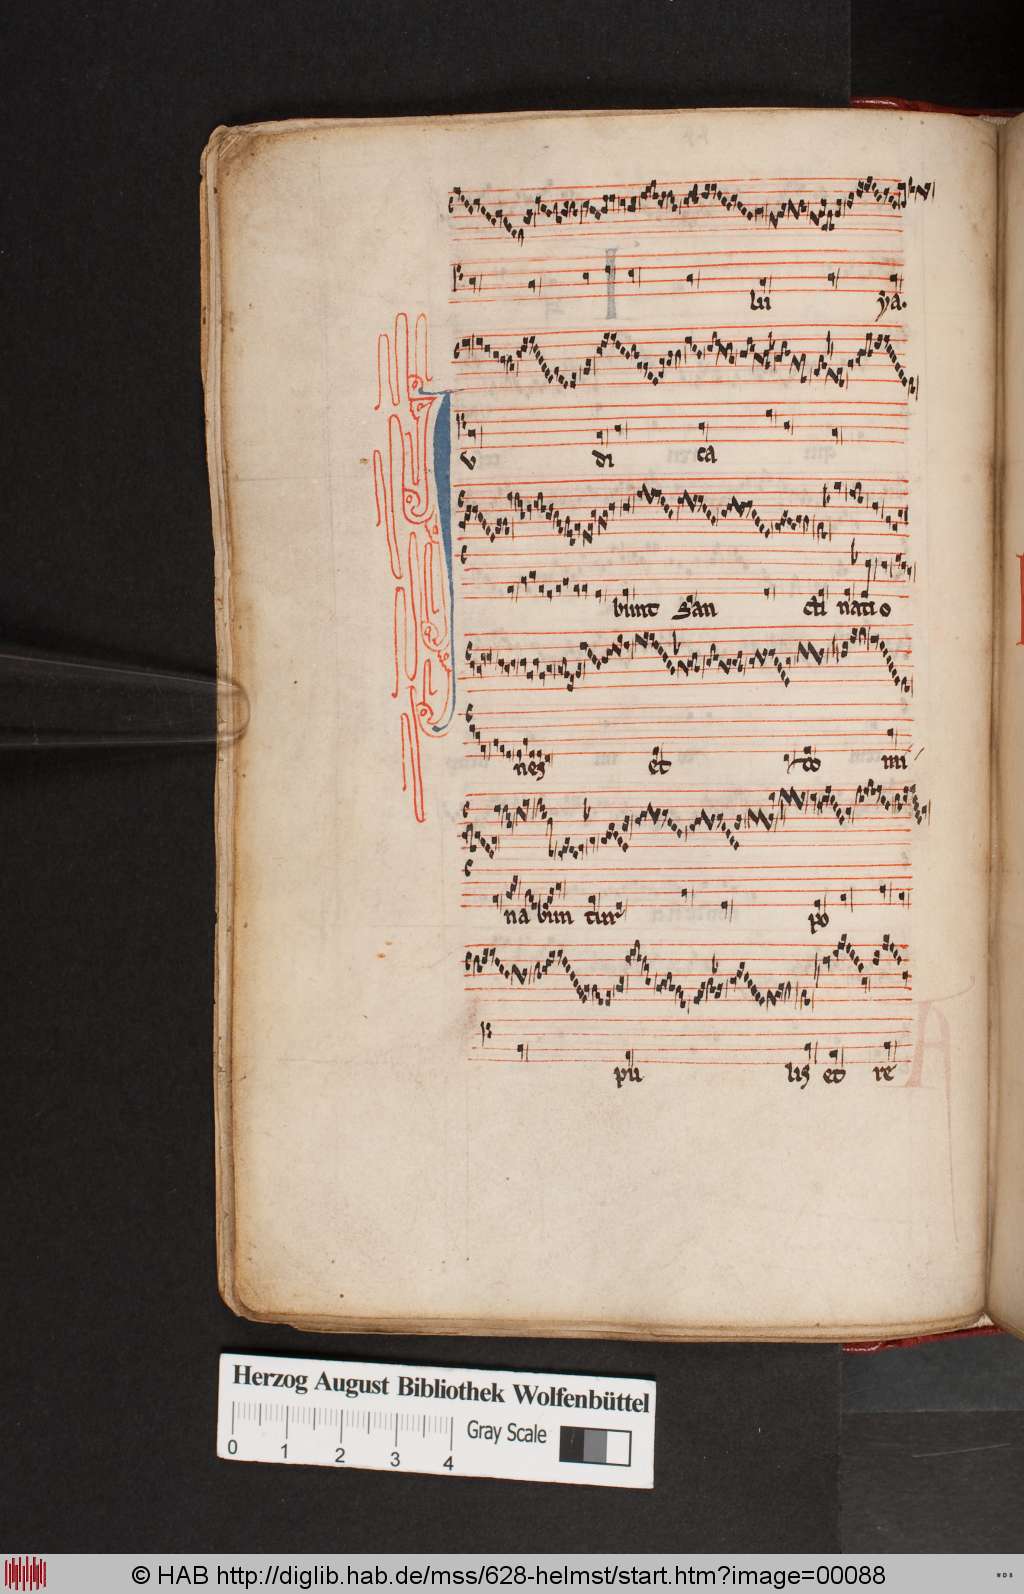 lu ya.
Iu di ca
bunt San cti natio
nes et do mi
na bun tur po
pu lis et re
Herzog August Bibliothek Wolfenbüttel
0 1 2 3 4
Gray Scale
© HAB http://diglib.hab.de/mss/628-helmst/start.htm?image=00088